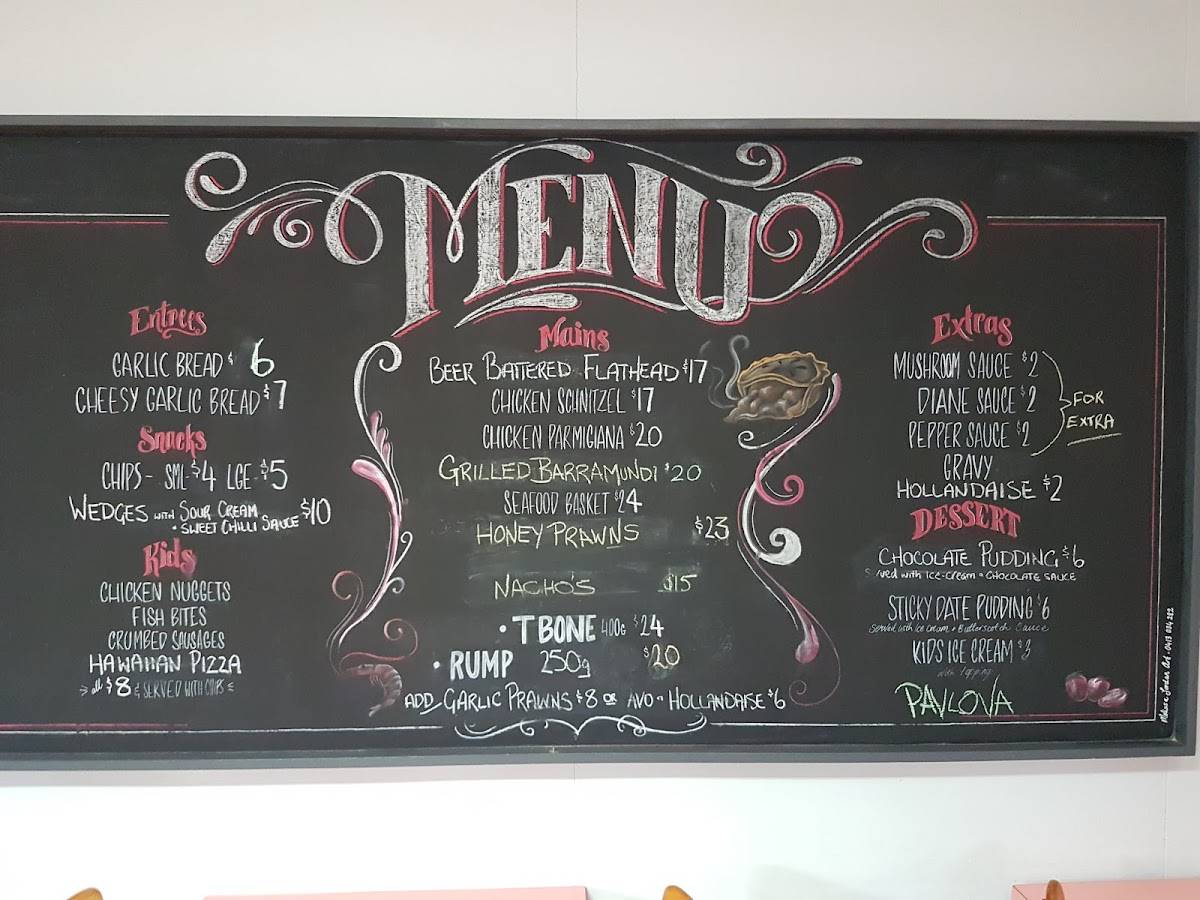 MENU
Entrees
GARLIC BREAD $6
CHEESY GARLIC BREAD $7
Snacks
CHIPS - SML-$4 LGE-$5
WEDGES WITH SOUR CREAM
• SWEET CHILLI SAUCE $10
Kids
CHICKEN NUGGETS
FISH BITES
CRUMBED SAUSAGES
HAWAIIAN PIZZA
all $8 & SERVED WITH CHIPS
Mains
BEER BATTERED FLATHEAD $17
CHICKEN SCHNITZEL $17
CHICKEN PARMIGIANA $20
GRILLED BARRAMUNDI $20
SEAFOOD BASKET $24
HONEY PRAWNS $23
NACHO'S $15
• T BONE 400G $24
• RUMP 250g $20
ADD GARLIC PRAWNS $8 OR AVO + HOLLANDAISE $6
Extras
MUSHROOM SAUCE $2
DIANE SAUCE $2
PEPPER SAUCE $2
FOR
EXTRA
GRAVY
HOLLANDAISE $2
DESSERT
CHOCOLATE PUDDING $6
Served with ICE-CREAM + CHOCOLATE SAUCE
STICKY DATE PUDDING $6
Served with Ice Cream + Butterscotch Sauce
KIDS ICE CREAM $3
with topping
PAVLOVA